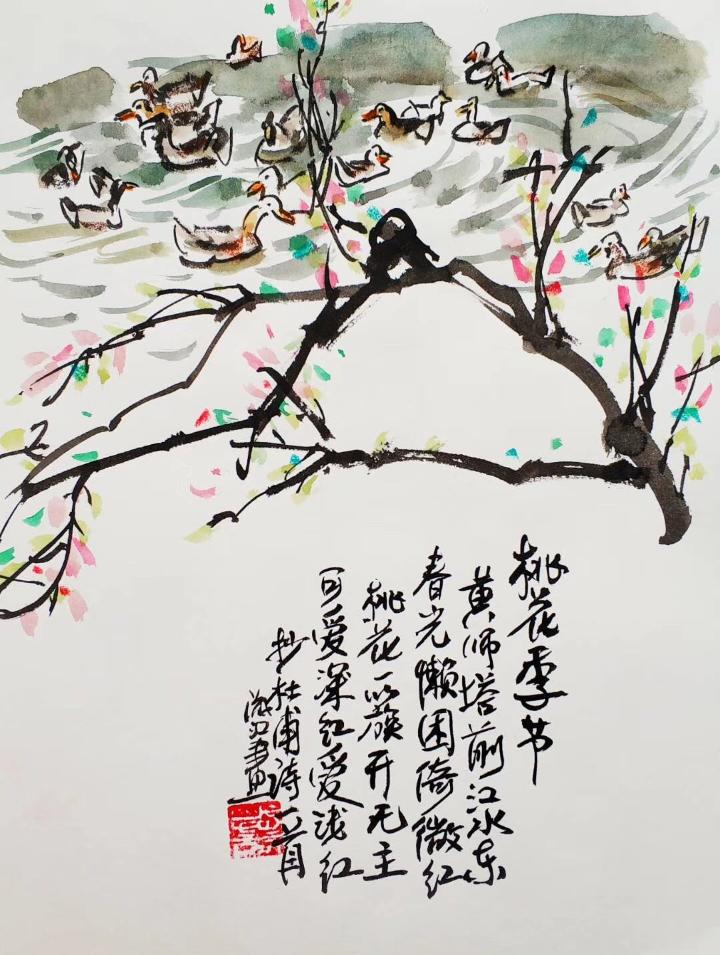 桃花季节
黄师塔前江水东
春光懒困倚微红
桃花一簇开无主
可爱深红爱浅红
抄杜甫诗